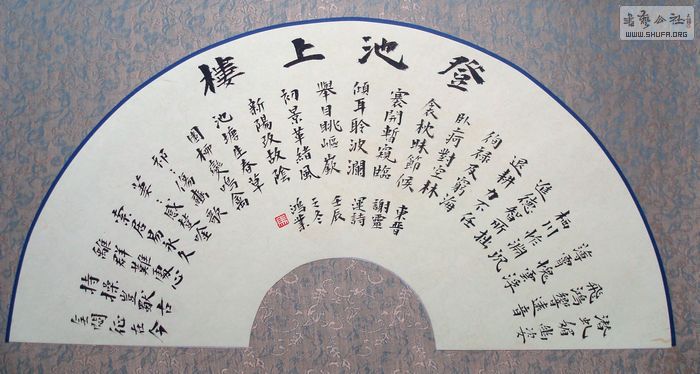 登池上樓
潛虬媚幽姿
飛鴻響遠音
薄霄愧雲浮
栖川怍淵沉
進德智所拙
退耕力不任
徇祿及窮海
卧痾對空林
衾枕昧節候
褰開暫窺臨
傾耳聆波瀾
舉目眺嶇嶔
初景革緒風
新陽改故陰
池塘生春草
園柳變鳴禽
祁〻傷豳歌
萋〻感楚吟
索居易永久
離群難處心
持操豈獨古
無悶征在今
東晉
謝靈
運詩
壬辰
之冬
鴻業
書藝公社
WWW.SHUFA.ORG